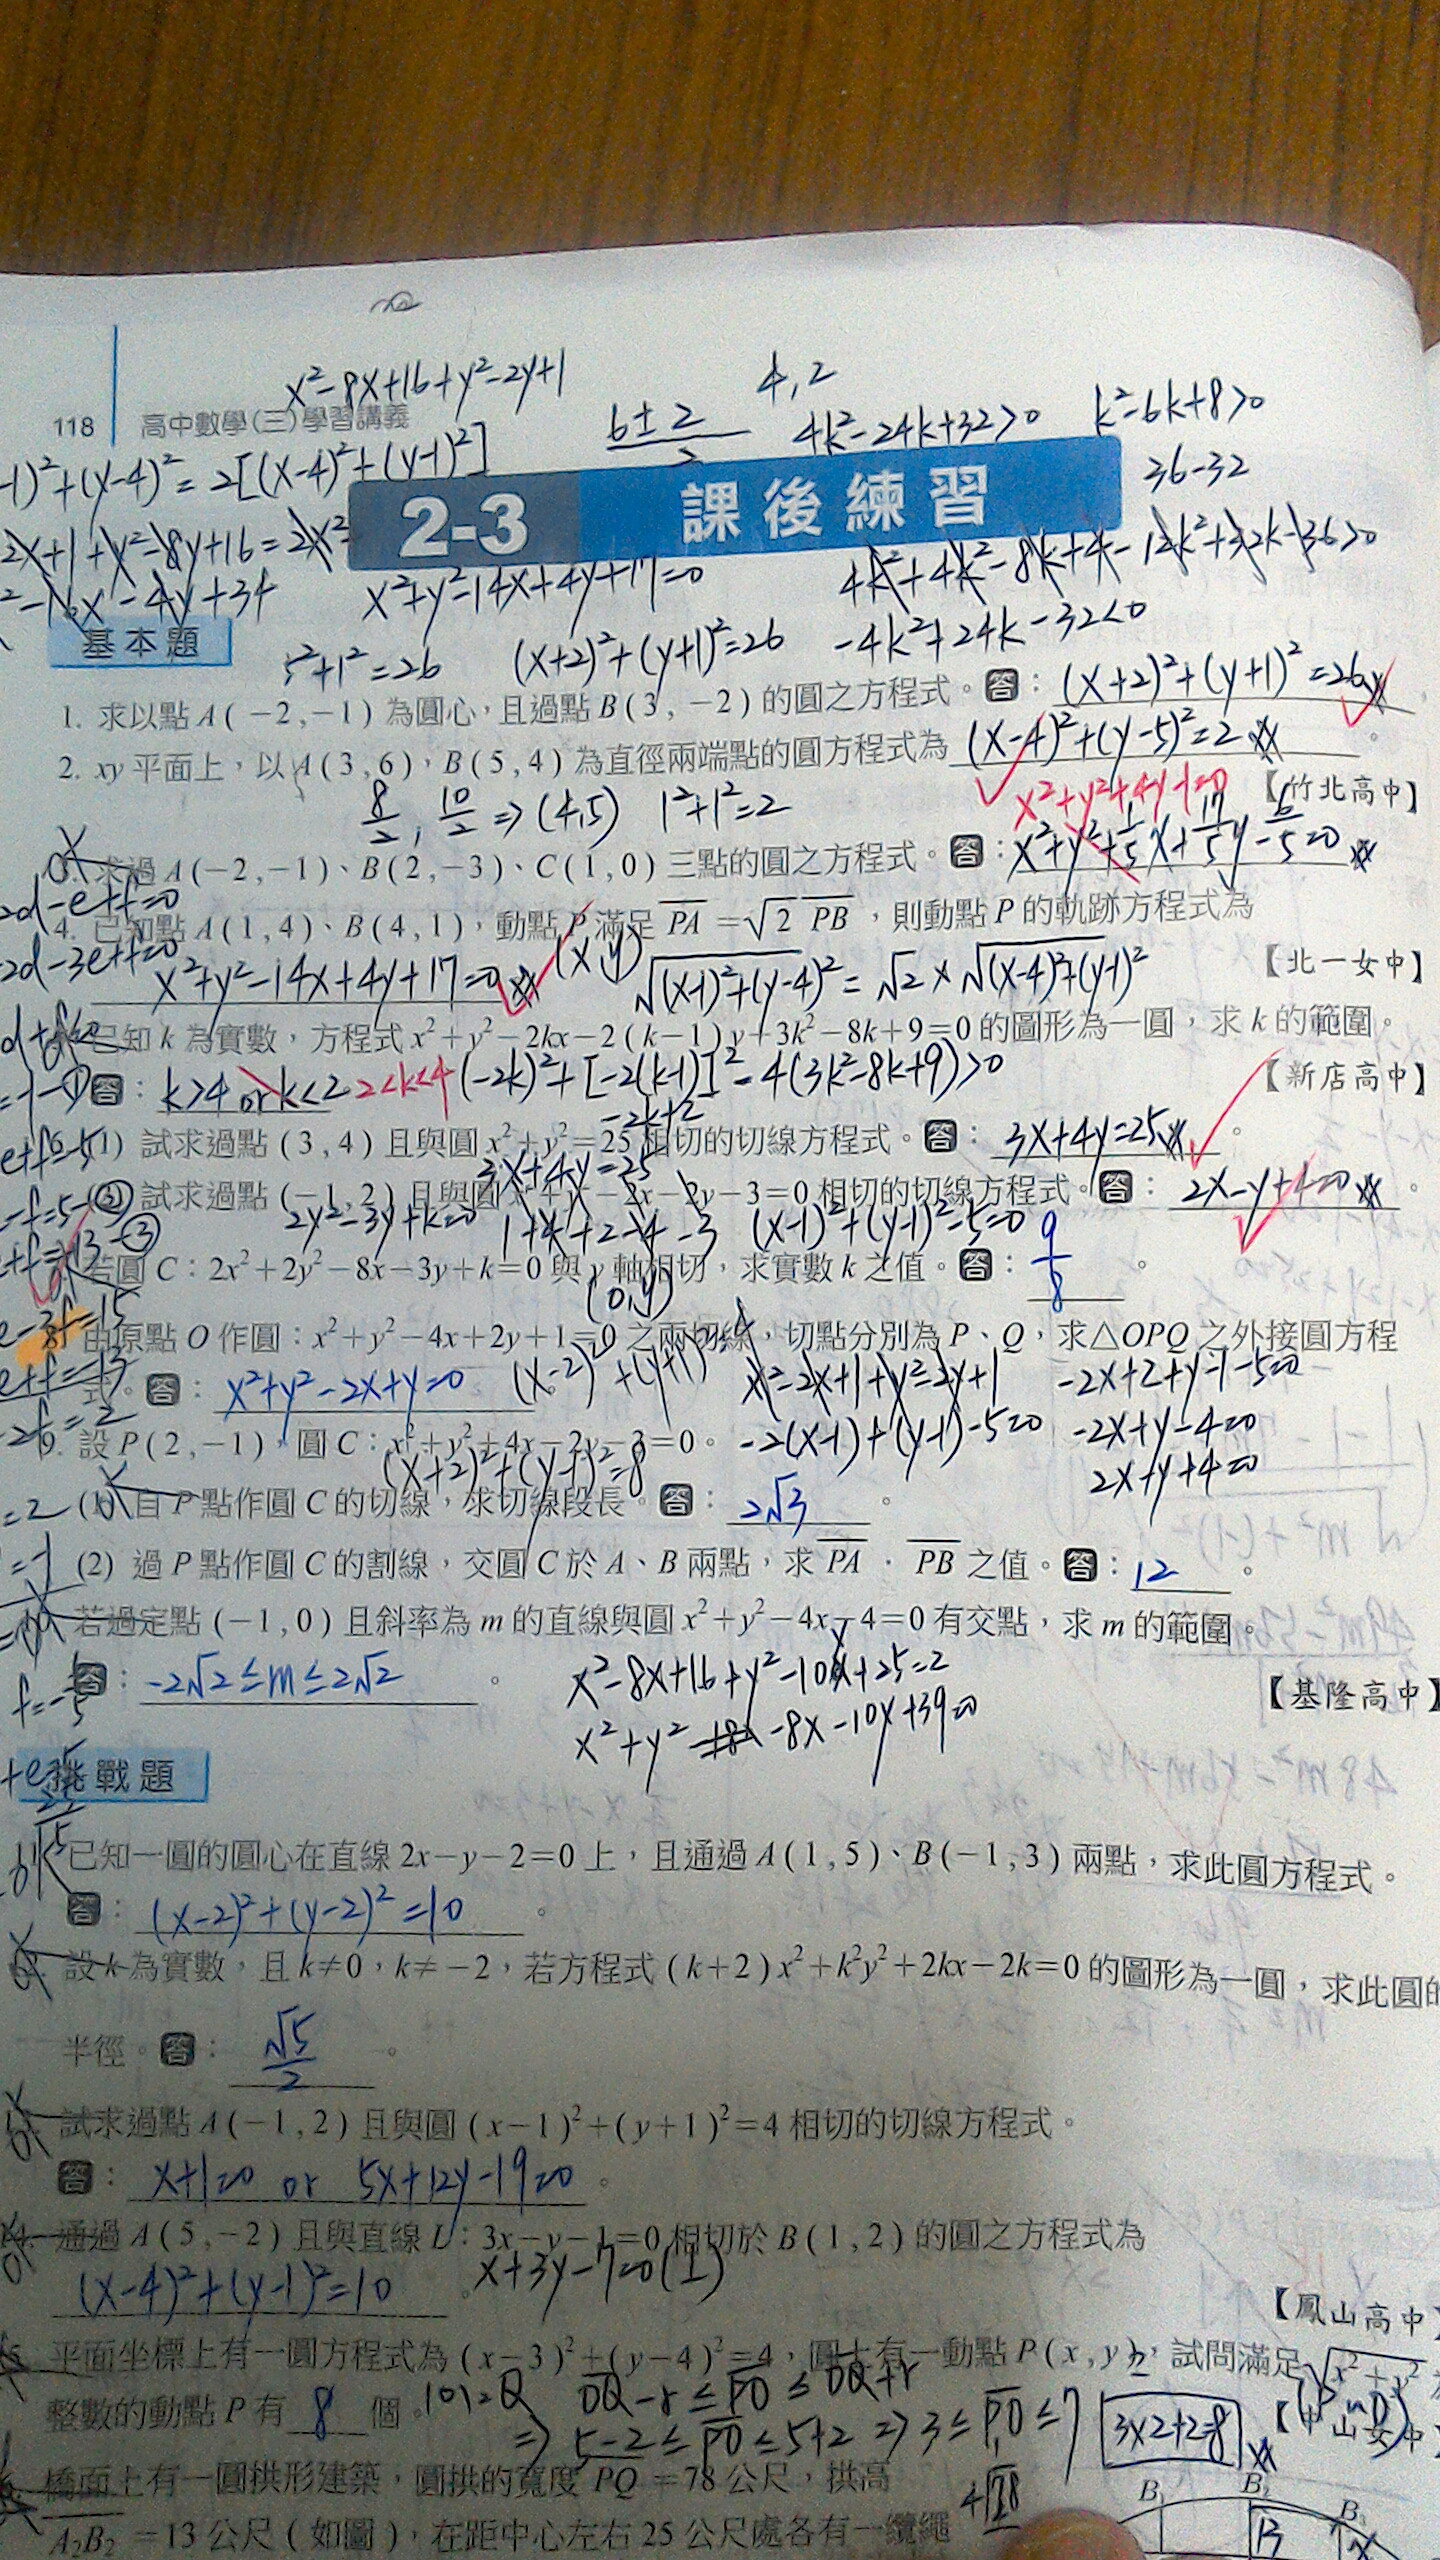 x²-8x+16+y²-2y+1
4,2
118 高中數學(三)學習講義
6±2
4k²-24k+32>0
k²-6k+8>0
-1)²+(x-4)²=2[(x-4)²+(y-1)²]
36-32
2-3 課後練習
x²+y²-14x+4y+17=0
4k²+4k²-8k+4-12k²+32k-36>0
-4k²+24k-32<0
基本題
5²+1²=26 (x+2)²+(y+1)²=26
1. 求以點A(-2,-1)為圓心,且過點B(3,-2)的圓之方程式。答:(x+2)²+(y+1)²=26
2. xy平面上,以A(3,6),B(5,4)為直徑兩端點的圓方程式為(x-4)²+(y-5)²=2。
【竹北高中】
8/2, 10/2 ⇒(4,5) 1²+1²=2
x²+y²+4y-1=0
求過A(-2,-1)、B(2,-3)、C(1,0)三點的圓之方程式。答:x²+y²+1/5x+17/5y-6/5=0
4. 已知點A(1,4)、B(4,1),動點P滿足PA=√2 PB,則動點P的軌跡方程式為
x²+y²-14x+4y+17=0
(x,y)
√(x-1)²+(y-4)²=√2×√(x-4)²+(y-1)²
【北一女中】
已知k為實數,方程式x²+y²-2kx-2(k-1)y+3k²-8k+9=0的圖形為一圓,求k的範圍。
答:k>4 or k<2 2<k<4 (-2k)²+[-2(k-1)]²-4(3k²-8k+9)>0
-2k+2
【新店高中】
6.(1) 試求過點(3,4)且與圓x²+y²=25相切的切線方程式。答:3x+4y=25。
3x+4y=25
(2) 試求過點(-1,2)且與圓x²+y²-2x-2y-3=0相切的切線方程式。答:2x-y+4=0。
2y²-3y+k=0 1+4+2-4-3 (x-1)²+(y-1)²-5=0
若圓C:2x²+2y²-8x-3y+k=0與y軸相切,求實數k之值。答:9/8。
(0,y)
由原點O作圓:x²+y²-4x+2y+1=0之兩切線,切點分別為P、Q,求△OPQ之外接圓方程
式。答:x²+y²-2x+y=0
x²-2x+1+y²-2y+1
-2x+2+y-1-5=0
9. 設P(2,-1),圓C:x²+y²+4x-2y-3=0。
-2(x-1)+(y-1)-5=0
-2x+y-4=0
(x+2)²+(y-1)²=8
2x+y+4=0
(1) 自P點作圓C的切線,求切線段長。答:2√3。
(2) 過P點作圓C的割線,交圓C於A、B兩點,求PA·PB之值。答:12。
若過定點(-1,0)且斜率為m的直線與圓x²+y²-4x-4=0有交點,求m的範圍。
答:-2√2≤m≤2√2。
【基隆高中】
x²-8x+16+y²-10y+25=2
x²+y²-8x-10y+39=0
挑戰題
已知一圓的圓心在直線2x-y-2=0上,且通過A(1,5)、B(-1,3)兩點,求此圓方程式。
答:(x-2)²+(y-2)²=10。
設k為實數,且k≠0,k≠-2,若方程式(k+2)x²+k²y²+2kx-2k=0的圖形為一圓,求此圓的
半徑。答:√5/2。
試求過點A(-1,2)且與圓(x-1)²+(y+1)²=4相切的切線方程式。
答:x+1=0 or 5x+12y-19=0。
通過A(5,-2)且與直線L:3x-y-1=0相切於B(1,2)的圓之方程式為
(x-4)²+(y-1)²=10。
x+3y-7=0(⊥)
【鳳山高中】
平面坐標上有一圓方程式為(x-3)²+(y-4)²=4,圓上有一動點P(x,y),試問滿足√x²+y²為
整數的動點P有8個。
OQ-r≤PO≤OQ+r
⇒5-2≤PO≤5+2⇒3≤PO≤7
3×2+2=8
【中山女中】
橋面上有一圓拱形建築,圓拱的寬度PQ=78公尺,拱高
A₂B₂=13公尺(如圖),在距中心左右25公尺處各有一纜繩
B₁ B₂ B₃
13 x